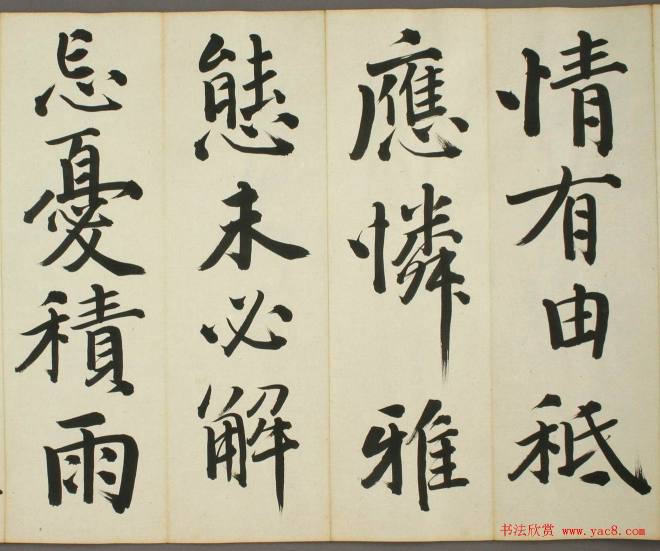 情有由秖
應憐雅
態未必解
忘憂積雨
书法欣赏 www.yac8.com